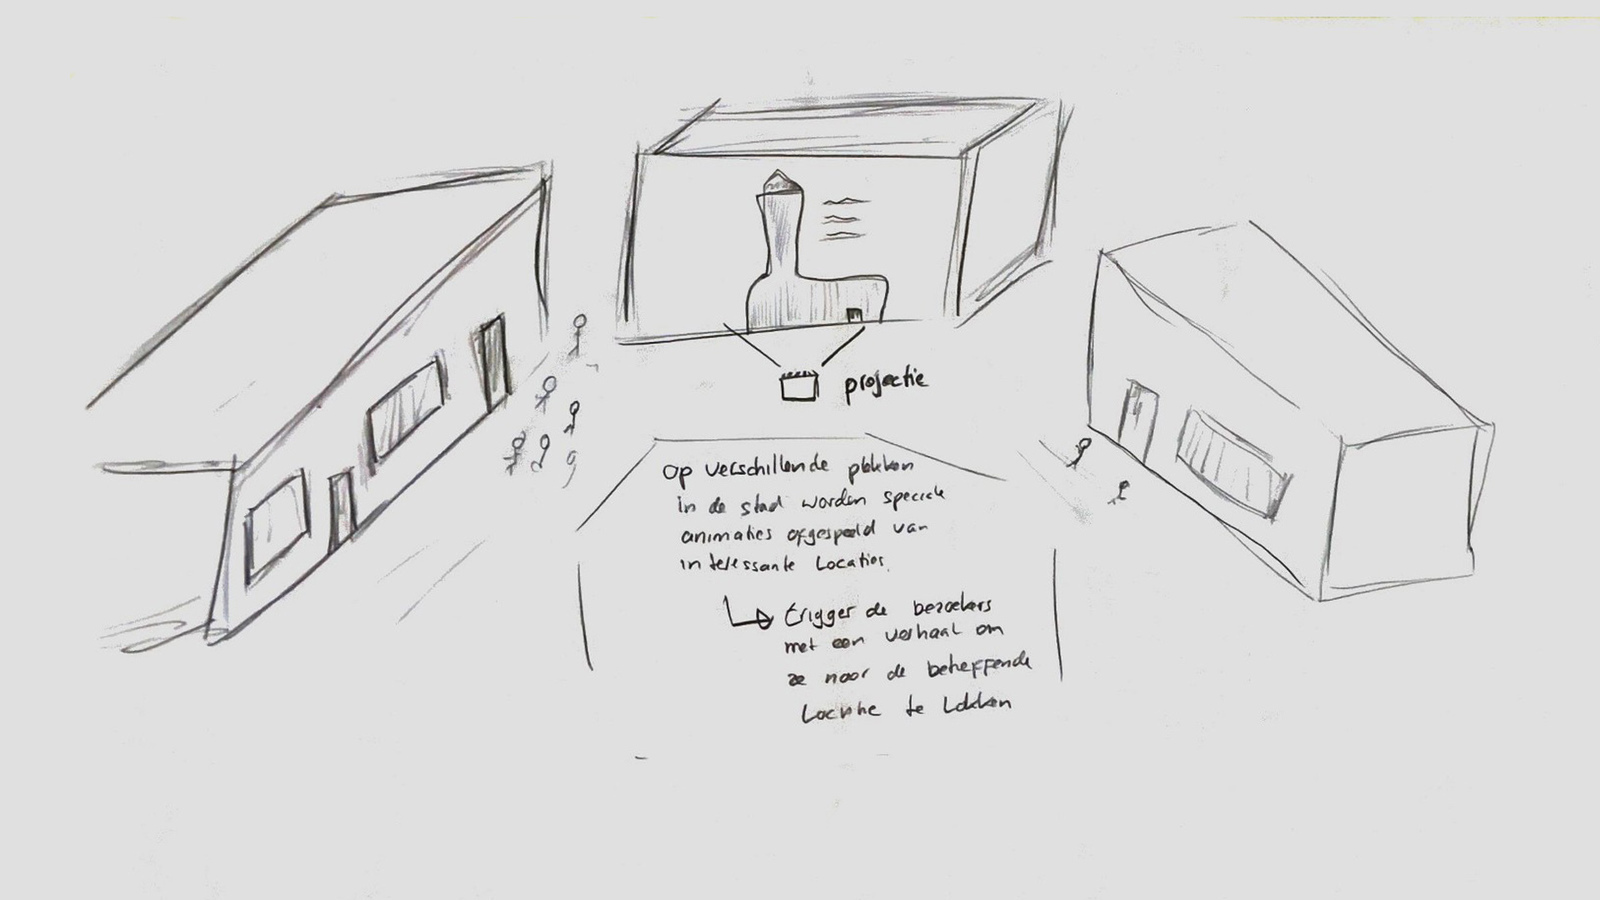 projectie
Op verschillende plekken
in de stad worden speciale
animaties afgespeeld van
interessante Locaties.
trigger de bezoekers
met een verhaal om
ze naar de betreffende
Locatie te Lokken